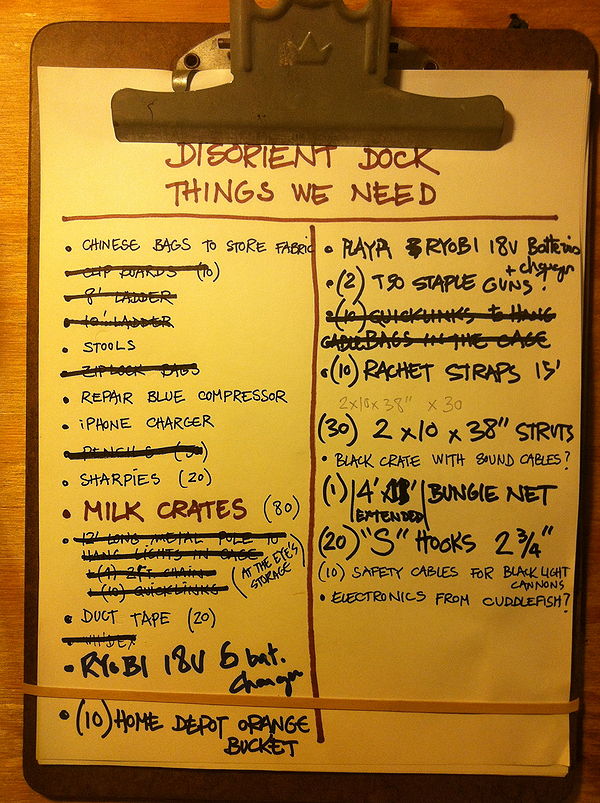 DISORIENT DOCK
THINGS WE NEED
• CHINESE BAGS TO STORE FABRIC
• CLIP BOARDS (10)
• 8' LADDER
• 10' LADDER
• STOOLS
• ZIPLOCK BAGS
• REPAIR BLUE COMPRESSOR
• iPHONE CHARGER
• PENCILS
• SHARPIES (20)
• MILK CRATES (80)
• 12' LONG METAL POLE TO
HANG LIGHTS IN CAGE
(4) 2FT CHAIN
(10) QUICKLINKS
(AT THE EYE'S
STORAGE)
• DUCT TAPE (20)
• WINDEX
• RYOBI 18V 6 bat.
Charger
• (10) HOME DEPOT ORANGE
BUCKET
• PLAYA RYOBI 18V Batteries
+ charger
• (2) T50 STAPLE GUNS
(10) QUICKLINKS to HANG
BAGS IN THE CAGE
• (10) RACHET STRAPS 15'
2x10x38" x 30
(30) 2x10x38" STRUTS
• BLACK CRATE WITH SOUND CABLES?
(1) 4' BUNGIE NET
EXTENDED
(20) "S" HOOKS 2 3/4"
(10) SAFETY CABLES FOR BLACK LIGHT
CANNONS
• ELECTRONICS FROM CUDDLEFISH?